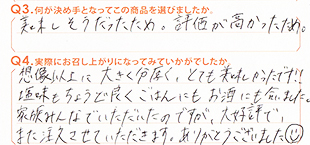 Q3.何が決め手となってこの商品を選びましたか。
美味しそうだったため。評価が高かったため。
Q4.実際にお召し上がりになってみていかがでしたか。
想像以上に大きく分厚く、とても美味しかったです!!
塩味もちょうど良くごはんにもお酒にも合いました。
家族みんなでいただいたのですが、大好評で、
また注文させていただきます。ありがとうございました☺